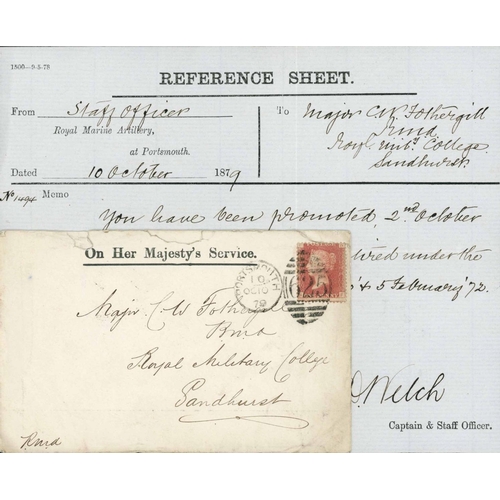 1500—9-5-78
REFERENCE SHEET.
From Staff Officer
Royal Marine Artillery,
at Portsmouth.
Dated 10 October 1879
To Major C.W. Fothergill
RMA
Royl Mily College
Sandhurst
No 1494 Memo
You have been promoted, 2nd October
ired under the
& 5 February '72.
Welch
Captain & Staff Officer.
On Her Majesty's Service.
PORTSMOUTH
OC 10
79
625
Major C.W. Fothergill
Rma
Royal Military College
Sandhurst
Rma